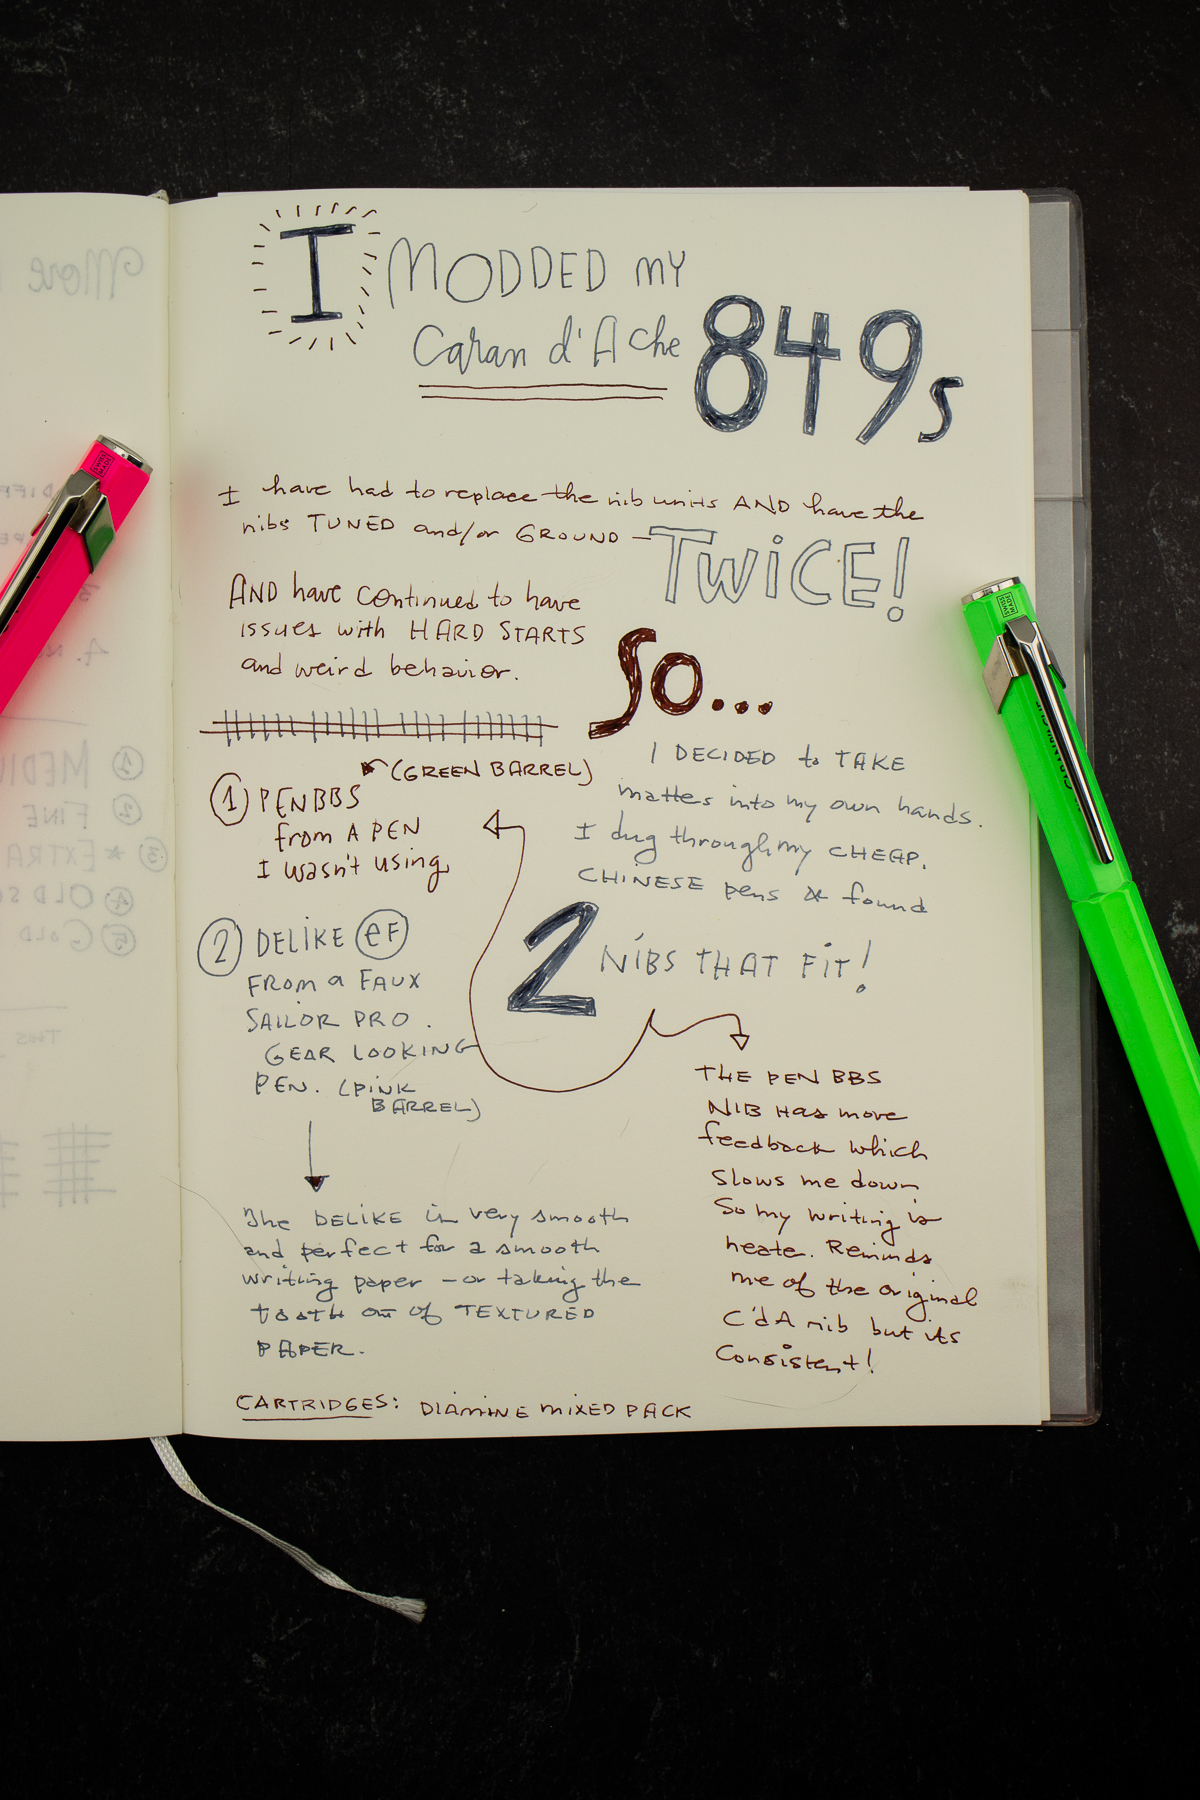 I MODDED MY
Caran d'Ache 849s
I have had to replace the nib units AND have the
nibs TUNED and/or GROUND — TWICE!
AND have continued to have
issues with HARD STARTS
and weird behavior.
SO...
I DECIDED to TAKE
matters into my own hands.
I dug through my CHEAP,
CHINESE pens & found
2 NIBS THAT FIT!
(GREEN BARREL)
1 PENBBS
from A PEN
I wasn't using
2 DELIKE EF
FROM a FAUX
SAILOR PRO.
GEAR LOOKING
PEN. (PINK
BARREL)
The DELIKE is very smooth
and perfect for a smooth
writing paper – or taking the
tooth out of TEXTURED
PAPER.
THE PEN BBS
NIB HAS more
feedback which
slows me down
So my writing is
neate. Reminds
me of the original
C'dA nib but its
Consistent!
CARTRIDGES: DIAMINE MIXED PACK
SWISS
MADE
SWISS
MADE